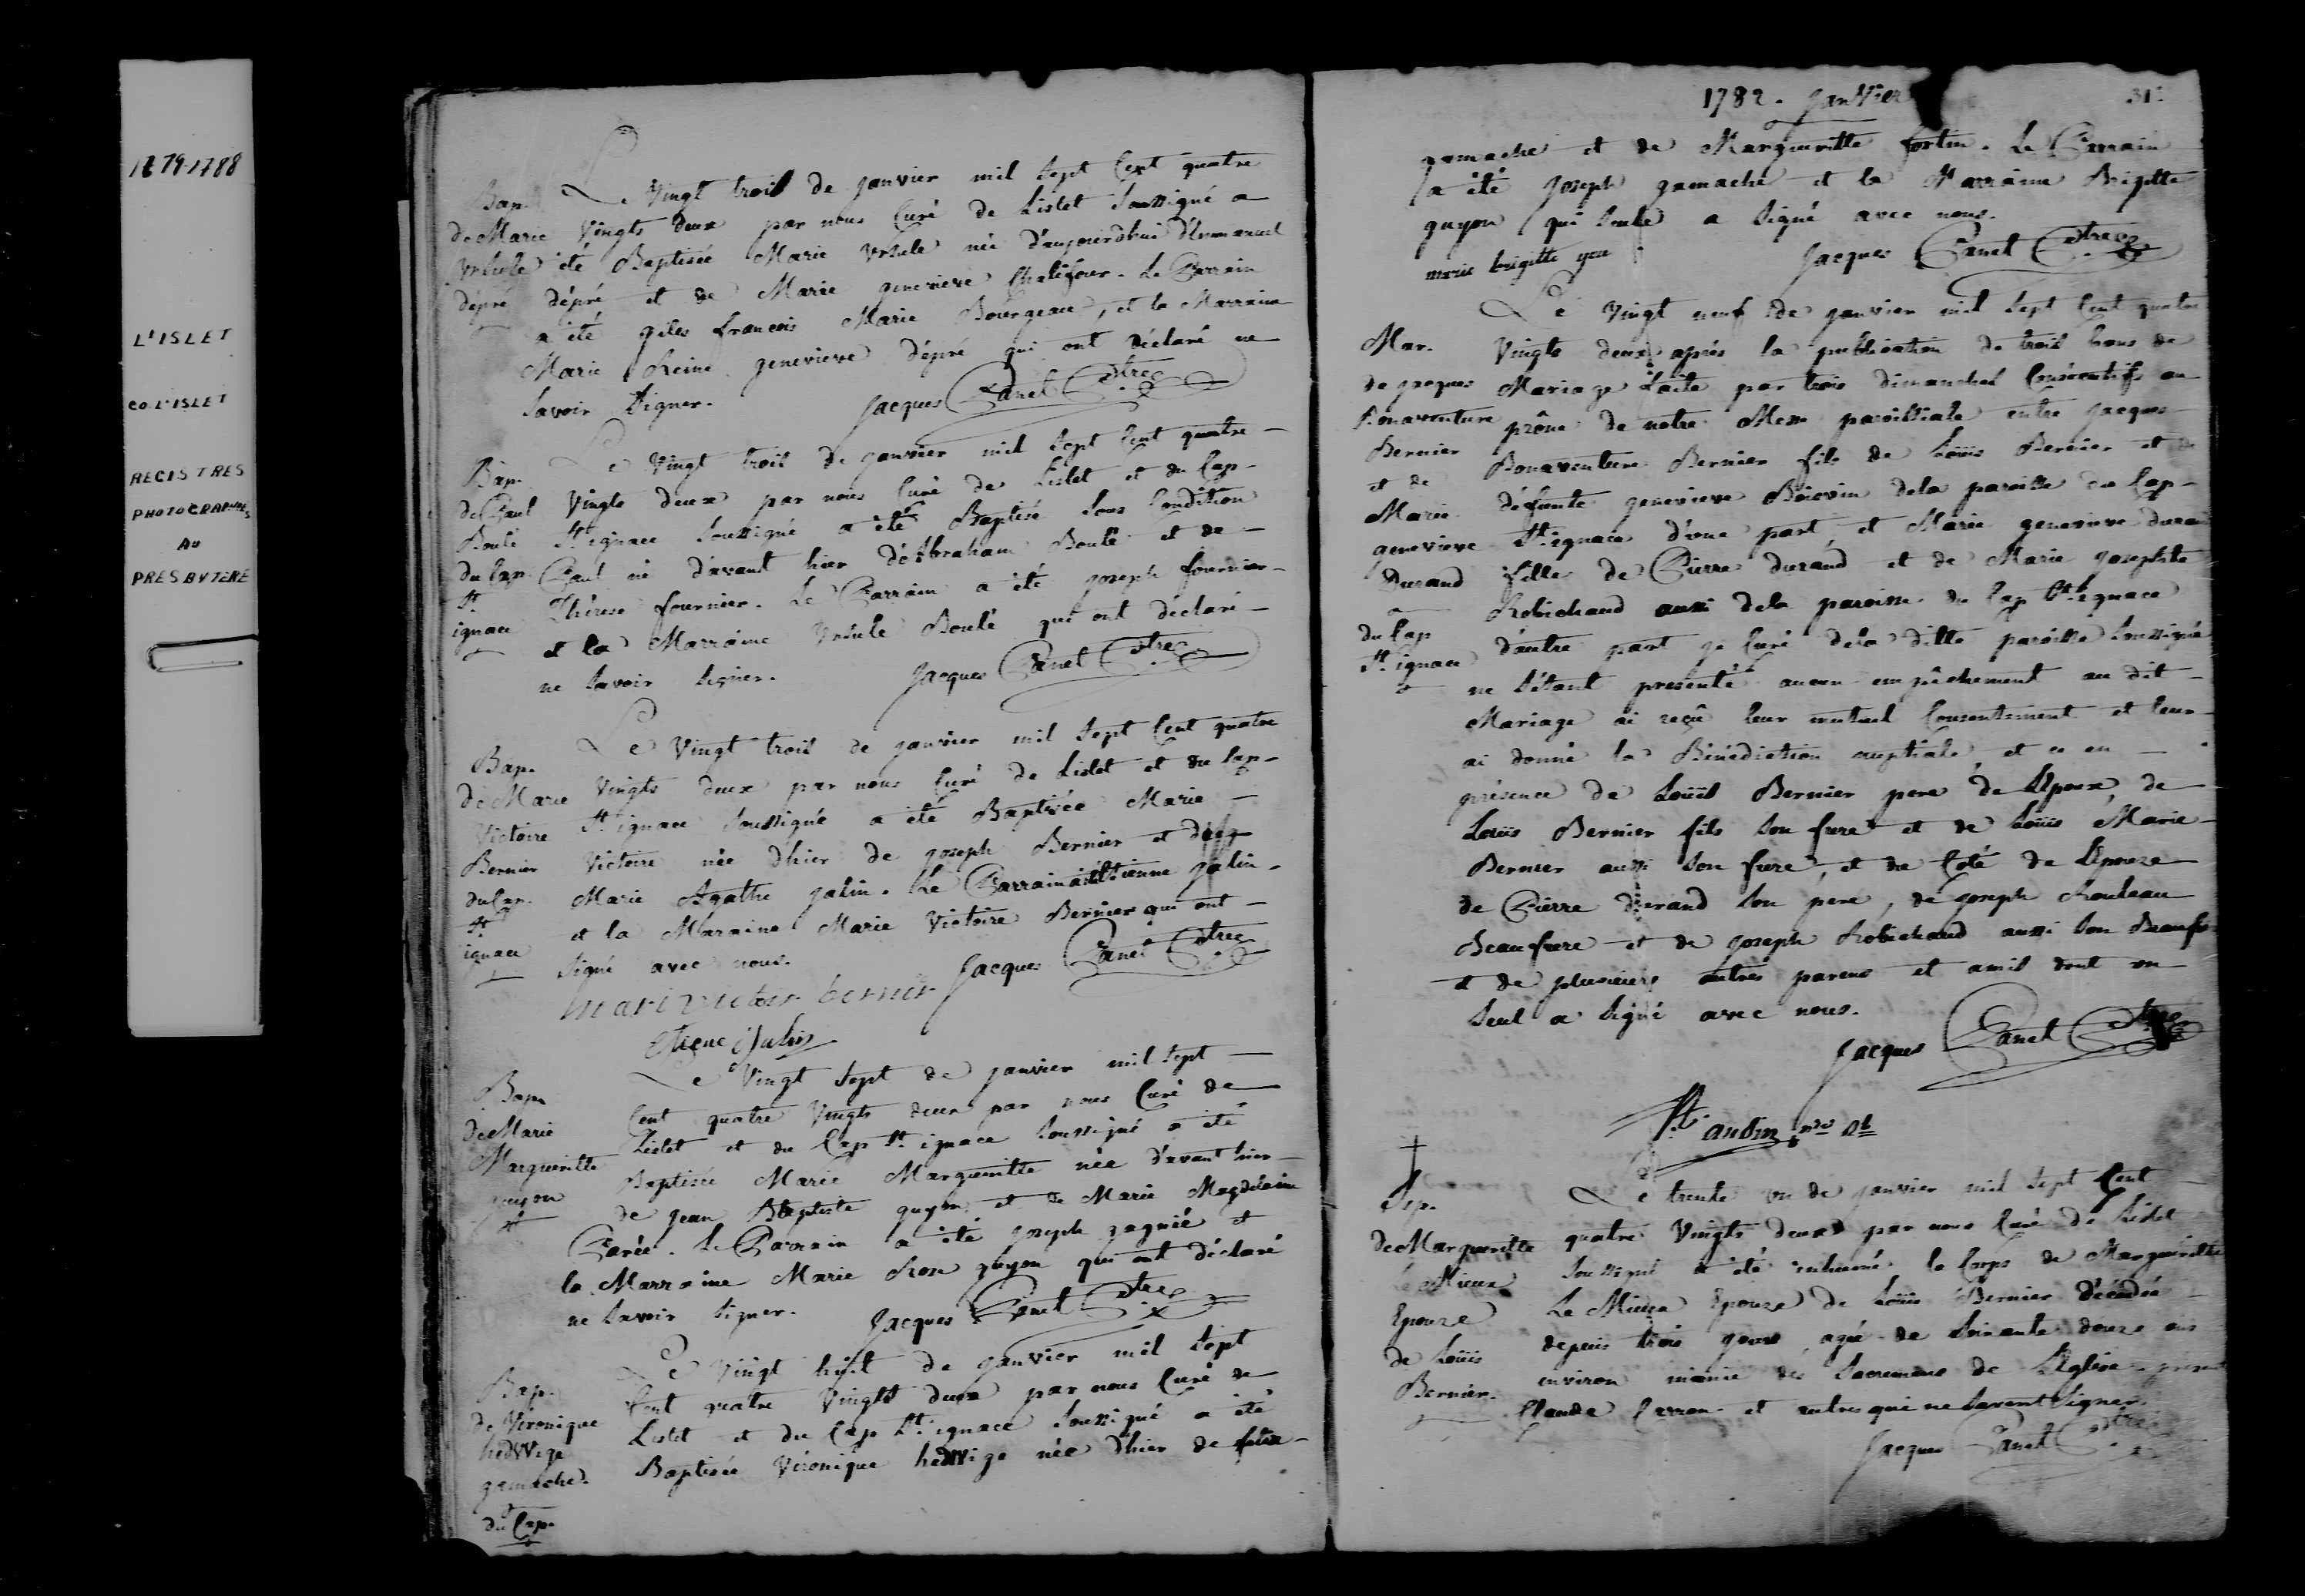 1779-1788
L'ISLET
CO. L'ISLET
REGISTRES
PHOTOGRAPHIÉS
AU
PRESBYTERE
Bap.
de Marie
Ursule
dépré
Le Vingt trois de janvier mil sept Cent quatre
Vingts deux par nous Curé de Lislet Soussigné a
été Baptisée Marie Ursule née d'aujourdhui d'Emmanuel
dépré et de Marie genevieve Chalifour. Le Parrain
a été giles francois Marie Bourgeau, et la Marraine
Marie Reine genevieve dépré qui ont déclaré ne
Savoir Signer.
Jacques Panet Ptre
Bap.
de Paul
Boulé
du Cap
St
ignace
Le Vingt trois de janvier mil Sept Cent quatre
Vingts deux par nous Curé de Lislet et du Cap
St ignace Soussigné a été Baptisé Sous Condition
Paul né d'avant hier d'Abraham Boulé et de
Thérese fournier. Le Parrain a été joseph fournier
et la Marraine Ursule Boulé qui ont déclaré
ne Savoir Signer.
Jacques Panet Ptre
Bap.
de Marie
Victoire
Bernier
du Cap.
St
ignace
Le Vingt trois de janvier mil Sept Cent quatre
Vingts deux par nous Curé de Lislet et du Cap
St ignace Soussigné a été Baptisée Marie
Victoire née d'hier de joseph Bernier et de
Marie Agathe jalin. Le Parrain a été Etienne jalin
et la Maraine Marie Victoire Bernier qui ont
Signé avec nous.
Jacques Panet Ptre
mari victoir bernier
Bap.
de Marie
Margueritte
guyon
Le Vingt Sept de janvier mil Sept
Cent quatre Vingts deux par nous Curé de
Lislet et du Cap St ignace Soussigné a été
Baptisée Marie Margueritte née d'avant hier
de jean Baptiste guyon et de Marie Magdelaine
Paré. Le Parrain a été joseph gagnié et
la Marraine Marie Rose guyon qui ont déclaré
ne Savoir Signer.
Jacques Panet Ptre
Bap.
de Véronique
hedwige
gamache.
du Cap.
Le Vingt huit de janvier mil Sept
Cent quatre Vingts deux par nous Curé de
Lislet et du Cap St ignace Soussigné a été
Baptisée Véronique hedwige née d'hier de
1782. janvier
31.
gamache et de Margueritte fortin. Le Parrain
a été joseph gamache et la Marraine Brigitte
guyon qui Seule a Signé avec nous.
marie brigitte
Jacques Panet Ptre
Mar.
de jacques
Bonaventure
Bernier
et de
Marie
genevieve
Durand
du Cap
St ignace
Le Vingt neuf de janvier mil Sept Cent quatre
Vingts deux après la publication de trois bans de
Mariage faite par trois dimanches Consécutifs au
prône de notre Messe paroissiale entre jacques
Bonaventure Bernier fils de Loüis Bernier et de
défunte genevieve Boisvin dela paroisse du Cap
St ignace d'une part, et Marie genevieve durand
fille de Pierre durand et de Marie josephte
Robichaud aussi dela paroisse du Cap St ignace
d'autre part je Curé dela ditte paroisse Soussigné
ne S'étant presenté aucun empêchement au dit
Mariage ai reçû leur mutuel Consentement et leur
ai donné la Bénédiction nuptiale, et ce en
présence de Loüis Bernier pere de L'Epoux, de
Loüis Bernier fils Son frere et de Loüis Marie
Bernier aussi Son frere, et du Coté de L'Epouze
de Pierre durand Son pere, de joseph Rouleau
Beaufrere et de joseph Robichaud aussi Son Beaufr
et de plusieurs autres parens et amis dont un
Seul a Signé avec nous.
Jacques Panet Ptre
St aubin
†
Sep.
de Margueritte
Le Mieux
Epouze
de Loüis
Bernier.
Le trente un de janvier mil Sept Cent
quatre Vingts deux par nous Curé de Lislet
Soussigné a été inhumé le Corps de Margueritte
Le Mieux Epouze de Loüis Bernier décédée
depuis trois jours agée de Soixante douze ans
environ munie des Sacremens de L'Eglise. présent
Claude Carron et autres qui ne Savent Signer.
Jacques Panet Ptre